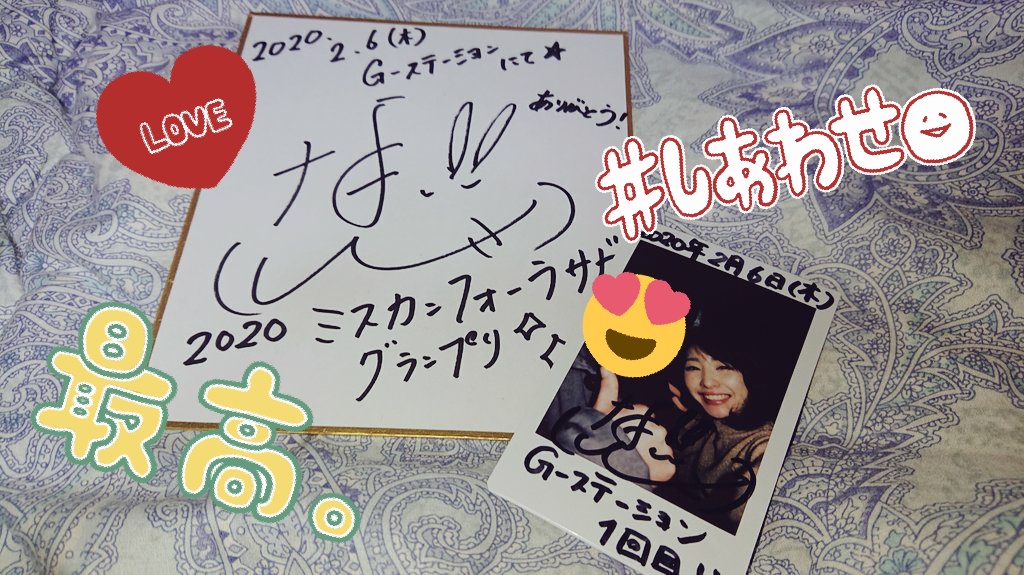 2020.
2.6(木)
Gーステーション
にて☆
ありがとう!
LOVE
#しあわせ
2020 ミスカンフォーラザ
グランプリ
最高。
2020年2月6日(木)
Gーステーション
1回目